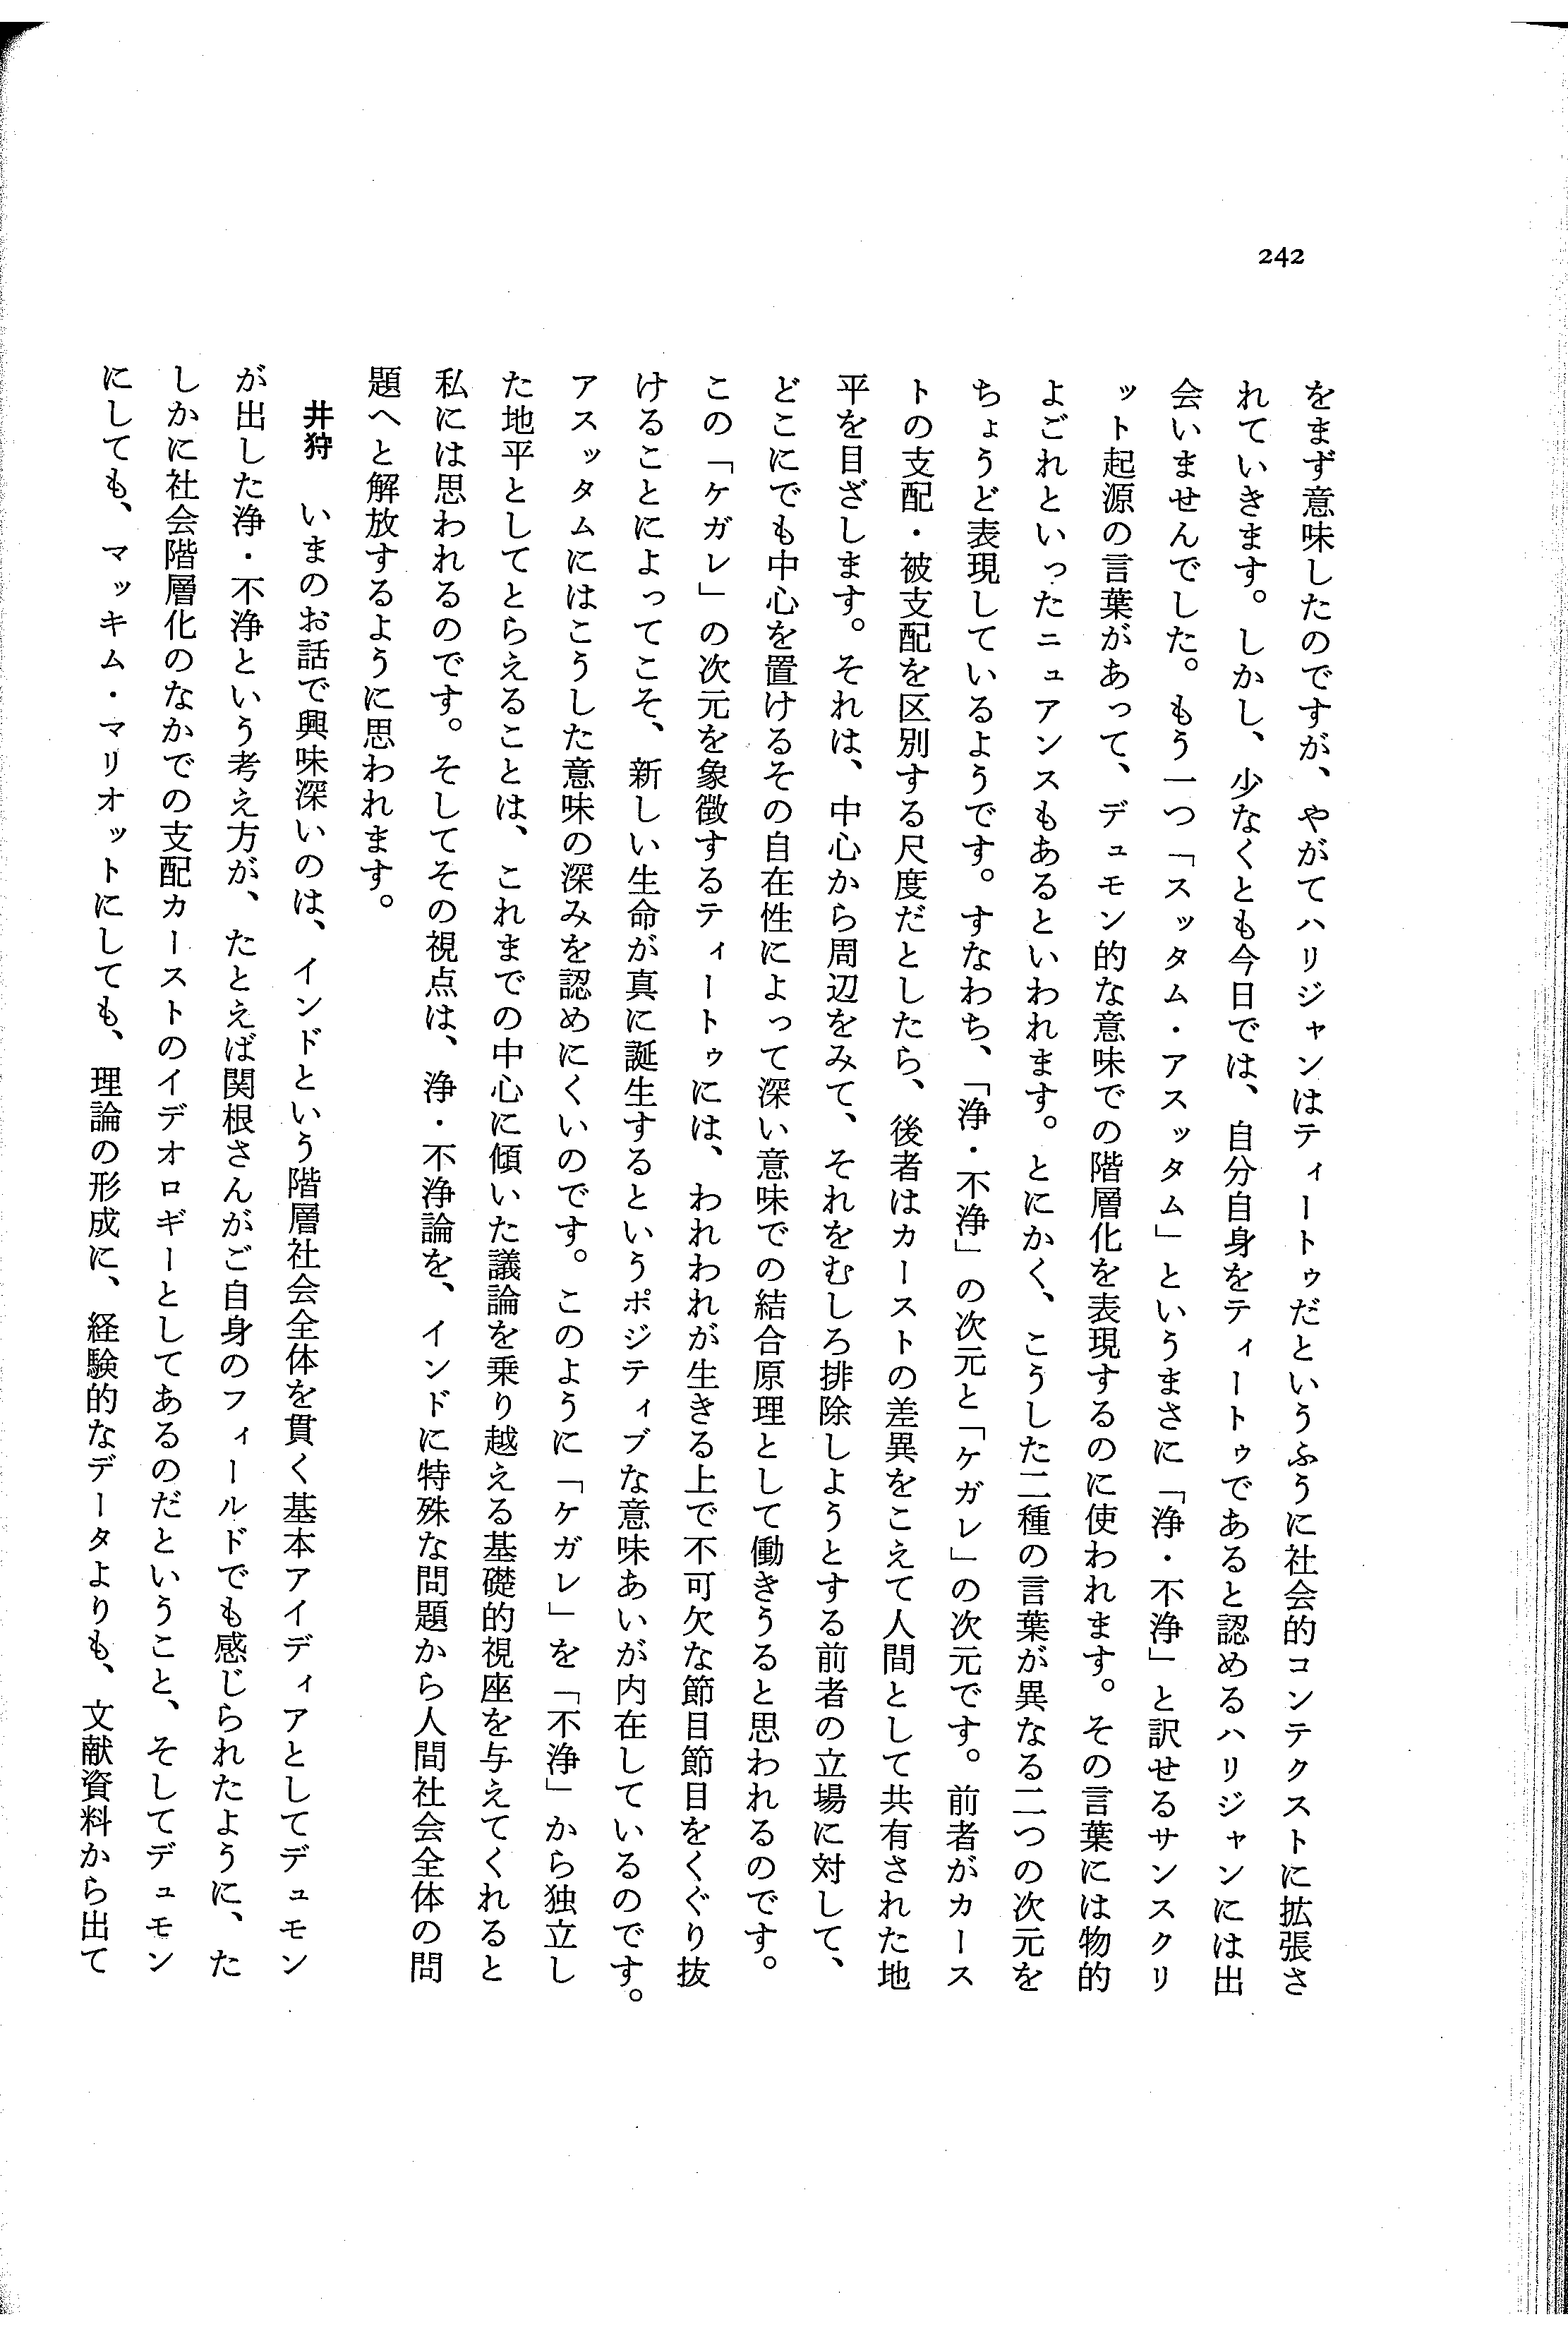 242
をまず意味したのですが、やがてハリジャンはティートゥだというふうに社会的コンテクストに拡張さ
れていきます。しかし、少なくとも今日では、自分自身をティートゥであると認めるハリジャンには出
会いませんでした。もう一つ「スッタム・アスッタム」というまさに「浄・不浄」と訳せるサンスクリ
ット起源の言葉があって、デュモン的な意味での階層化を表現するのに使われます。その言葉には物的
よごれといったニュアンスもあるといわれます。とにかく、こうした二種の言葉が異なる二つの次元を
ちょうど表現しているようです。すなわち、「浄・不浄」の次元と「ケガレ」の次元です。前者がカース
トの支配・被支配を区別する尺度だとしたら、後者はカーストの差異をこえて人間として共有された地
平を目ざします。それは、中心から周辺をみて、それをむしろ排除しようとする前者の立場に対して、
どこにでも中心を置けるその自在性によって深い意味での結合原理として働きうると思われるのです。
この「ケガレ」の次元を象徴するティートゥには、われわれが生きる上で不可欠な節目節目をくぐり抜
けることによってこそ、新しい生命が真に誕生するというポジティブな意味あいが内在しているのです。
アスッタムにはこうした意味の深みを認めにくいのです。このように「ケガレ」を「不浄」から独立し
た地平としてとらえることは、これまでの中心に傾いた議論を乗り越える基礎的視座を与えてくれると
私には思われるのです。そしてその視点は、浄・不浄論を、インドに特殊な問題から人間社会全体の問
題へと解放するように思われます。
井狩　いまのお話で興味深いのは、インドという階層社会全体を貫く基本アイディアとしてデュモン
が出した浄・不浄という考え方が、たとえば関根さんがご自身のフィールドでも感じられたように、た
しかに社会階層化のなかでの支配カーストのイデオロギーとしてあるのだということ、そしてデュモン
にしても、マッキム・マリオットにしても、理論の形成に、経験的なデータよりも、文献資料から出て